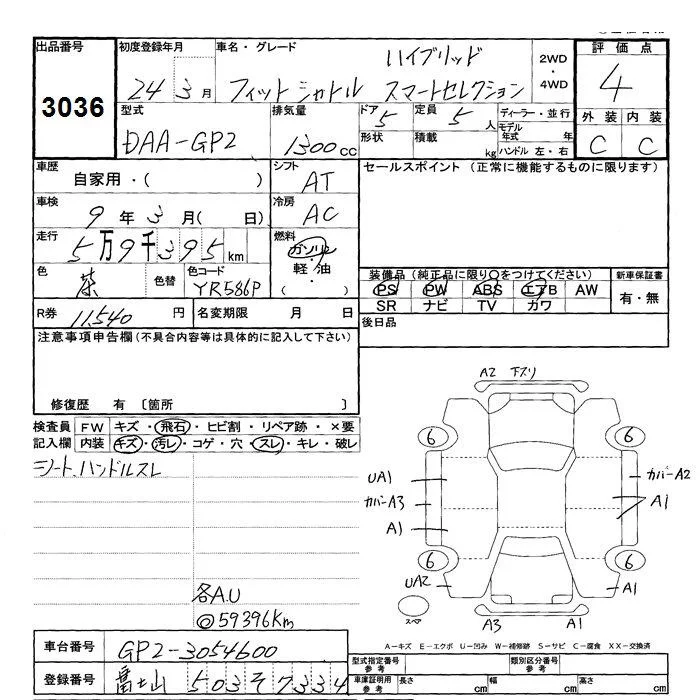 出品番号 初度登録年月 車名・グレード ハイブリッド 2WD・4WD 評価点
3036 24 3月 フィットシャトル スマートセレクション 4
型式 排気量 ドア 5 定員 5人 ディーラー・並行 外装 内装
DAA-GP2 1300cc 形状 積載 kg モデル年式 年 ハンドル 左・右 C C
車歴 シフト セールスポイント (正常に機能するものに限ります)
自家用・( ) AT
車検 冷房
9年3月( 日) AC
走行 燃料
5万9千395km ガソリン・軽油・( )
色 色替 色コード 装備品 (純正品に限り○をつけてください) 新車保証書
茶 YR586P PS PW ABS エアB AW 有・無
SR ナビ TV カワ
R券 11,540円 名変期限 月 日 後日品
注意事項申告欄 (不具合内容等は具体的に記入して下さい)
修復歴 有 〔箇所 〕
検査員 FW キズ・飛石・ヒビ割・リペア跡・×要
記入欄 内装 キズ・汚レ・コゲ・穴・スレ・キレ・破レ
シート、ハンドルスレ
各A.U
◎59396Km
A2 下スリ
6 6
UA1 カバーA2
カバーA3 A1
A1
6 6
UA2 A1
スペア A3 A1
A-キズ E-エクボ U-凹み W-補修跡 S-サビ C-腐食 XX-交換済
車台番号 GP2-3054600 型式指定番号 参考 類別区分番号 参考
登録番号 富士山 503 そ 7334 車庫証明用 参考 長さ cm 幅 cm 高さ cm